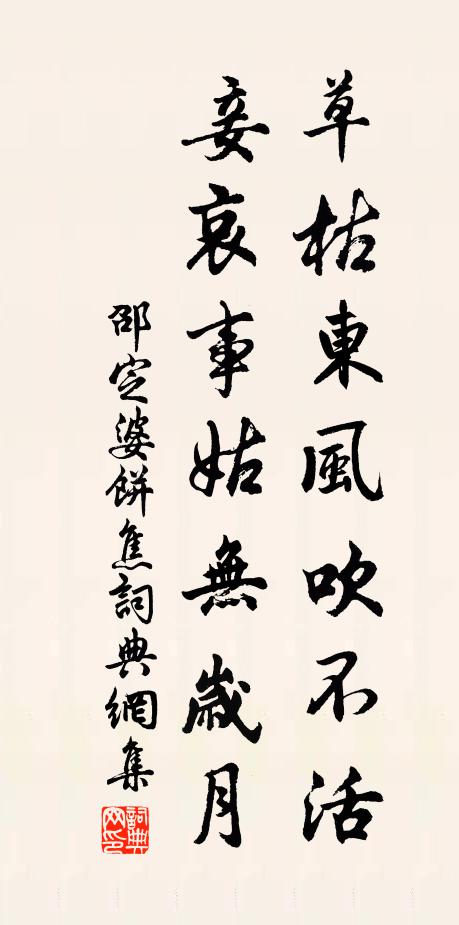 草枯東風吹不活
妾哀事姑無歲月
邵定婆餅焦詞典網集
詞典網印